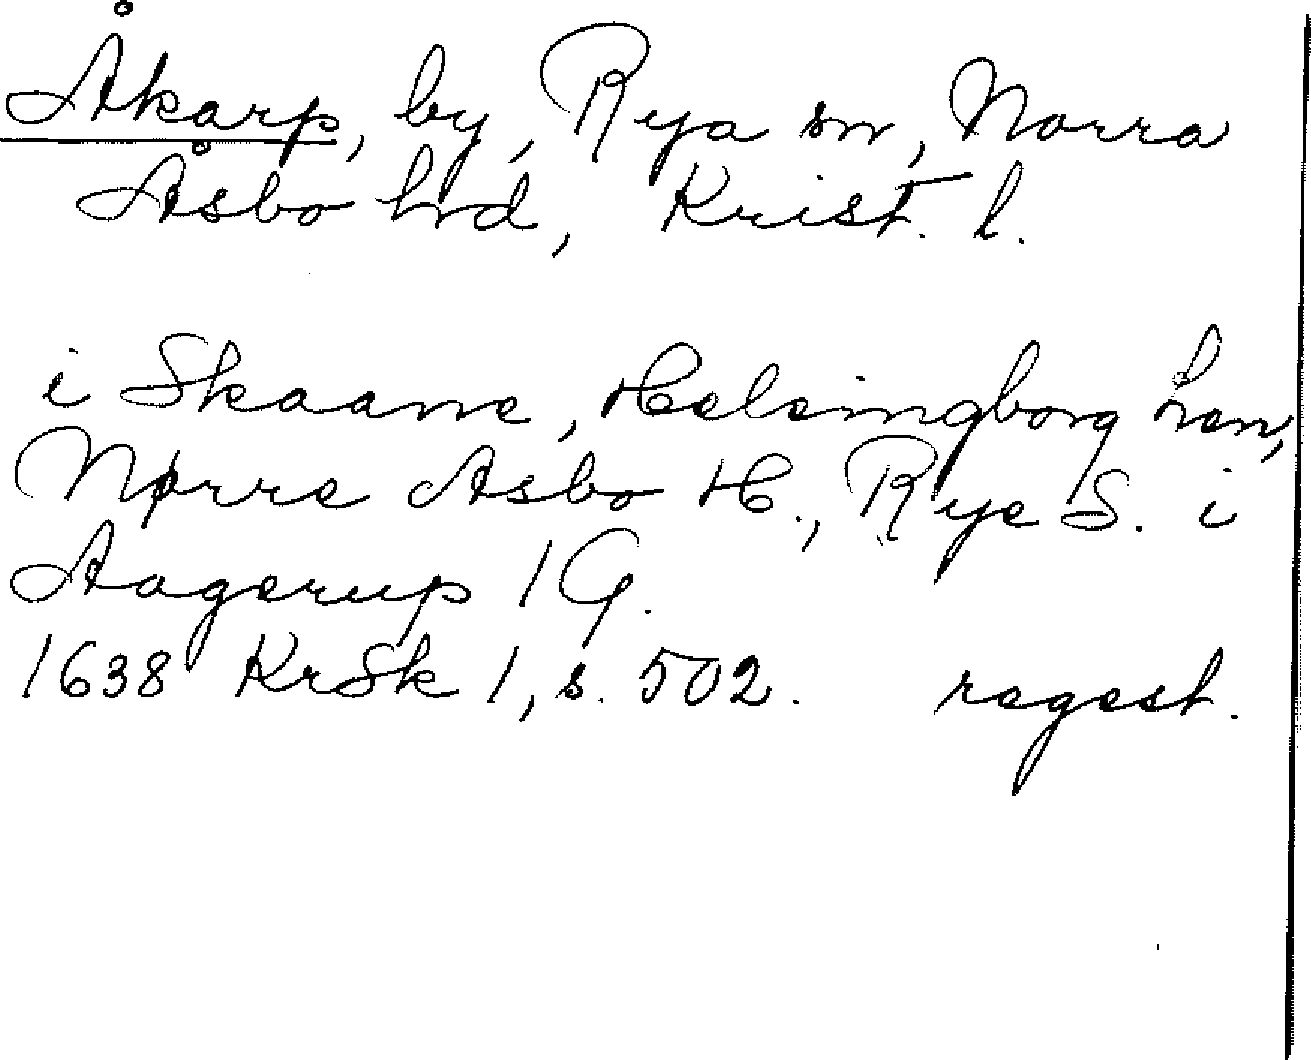 Åkarp, by, Rya sn, Norra
Åsbo hd, Krist. l.
i Skaane, Helsingborg Len,
Nørre Asbo H., Rye S. i
Aagerup 1 G.
1638 KrSk 1, s. 502. regest.